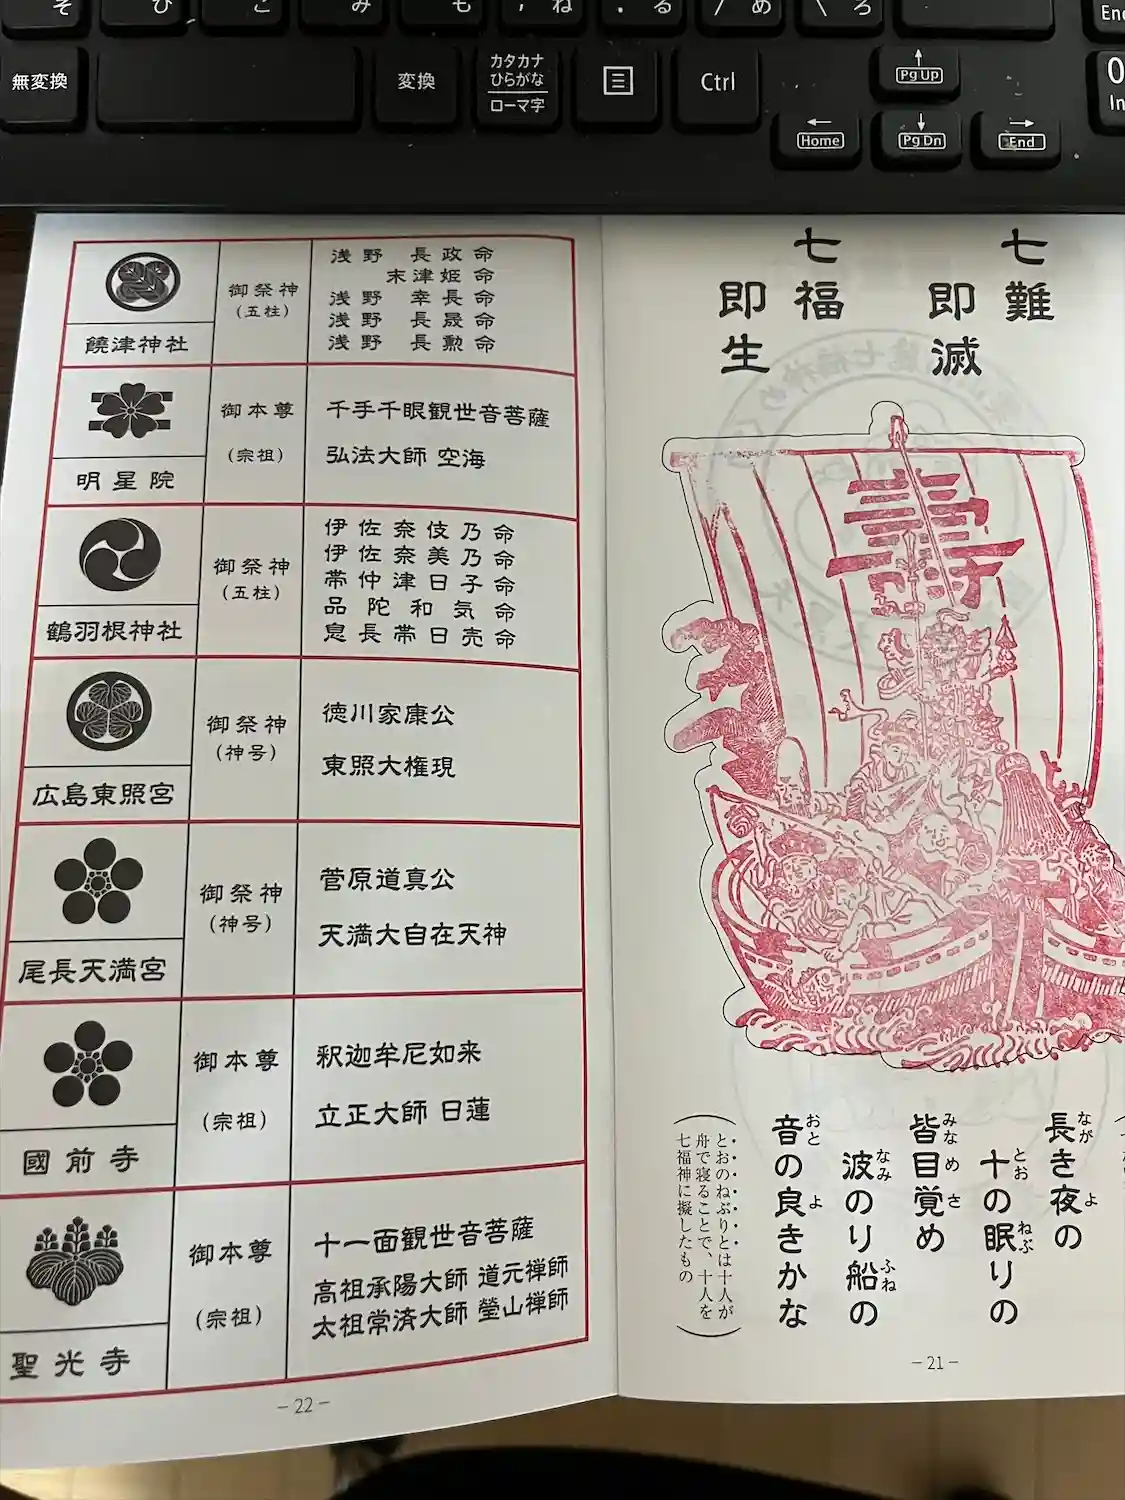 そ
ひ
こ
み
も
, ね
. る
/ め
\ ろ
無変換
変換
カタカナ
ひらがな
ローマ字
Ctrl
PgUp
Home
PgDn
End
0
In
七難
即滅
七福
即生
寿
長き夜の
なが よ
十の眠りの
とお ねぶ
皆目覚め
みなめ さ
波のり船の
なみ ふね
音の良きかな
おと よ
とおのねぶりとは十人が
舟で寝ることで、十人を
七福神に擬したもの
－21－
饒津神社
御祭神
(五柱)
浅野 長政命
末津姫命
浅野 幸長命
浅野 長晟命
浅野 長勲命
明星院
御本尊
(宗祖)
千手千眼観世音菩薩
弘法大師 空海
鶴羽根神社
御祭神
(五柱)
伊佐奈伎乃命
伊佐奈美乃命
帯仲津日子命
品陀和気命
息長帯日売命
広島東照宮
御祭神
(神号)
徳川家康公
東照大権現
尾長天満宮
御祭神
(神号)
菅原道真公
天満大自在天神
國前寺
御本尊
(宗祖)
釈迦牟尼如来
立正大師 日蓮
聖光寺
御本尊
(宗祖)
十一面観世音菩薩
高祖承陽大師 道元禅師
太祖常済大師 瑩山禅師
－22－